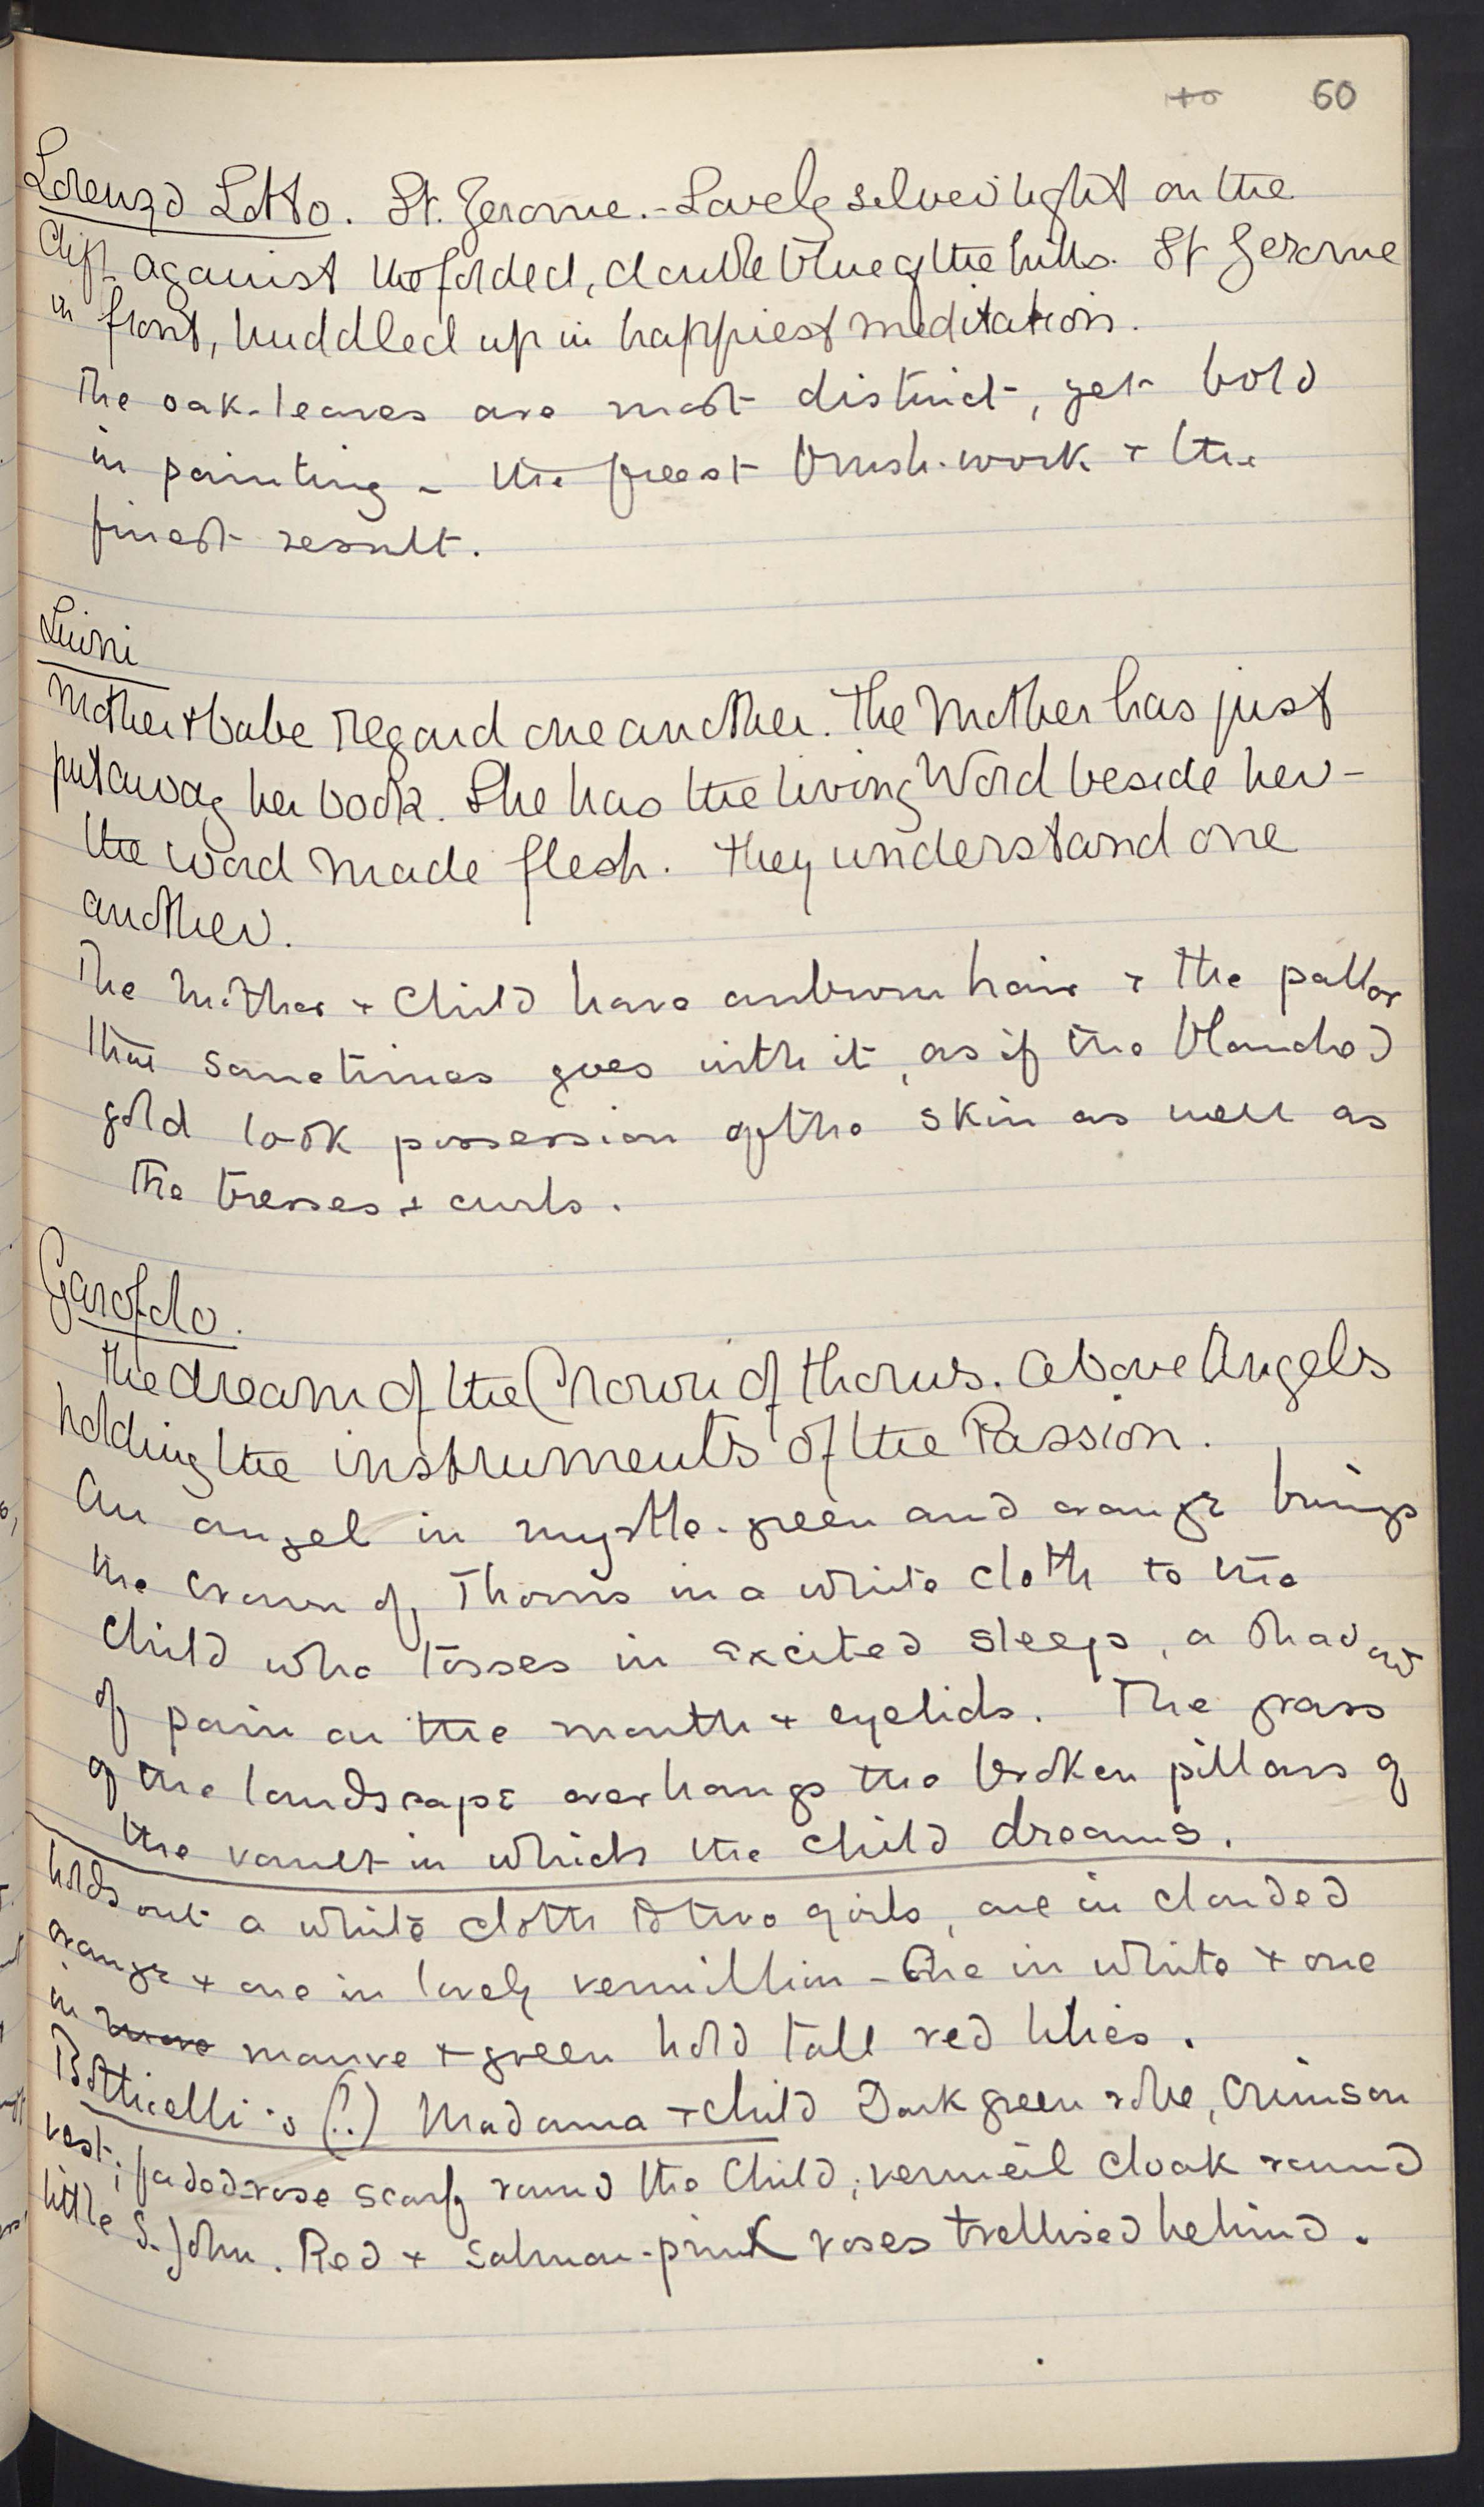 60
Lorenzo Lotto. St. Jerome. - Lovely silver light on the
cliff against the folded, double blue of the hills. St Jerome
in front, huddled up in happiest meditation.
The oak-leaves are most distinct, yet bold
in painting - the freest brush-work + the
finest result.
Luini
Mother + babe regard one another. The Mother has just
put away her book. She has the living Word beside her -
the word made flesh. They understand one
another.
The Mother + Child have auburn hair + the pallor
that sometimes goes with it, as if the blanched
gold took possession of the skin as well as
the tresses + curls.
Garofalo.
The dream of the Crown of thorns. Above Angels
holding the instruments of the Passion.
An angel in myrtle-green and orange brings
the crown of Thorns in a white cloth to the
Child who tosses in excited sleep, a shadow
of pain on the mouth + eyelids. The grass
of the landscape overhangs the broken pillars of
the vault in which the child dreams.
holds out a white cloth to two girls, one in clouded
orange + one in lovely vermillion - One in white + one
in mauve + green hold tall red lilies.
Botticelli's (?) Madonna + child Dark green robe, crimson
vest; faded-rose scarf round the Child; vermeil cloak round
little S. John. Red + Salmon-pink roses trellised behind.